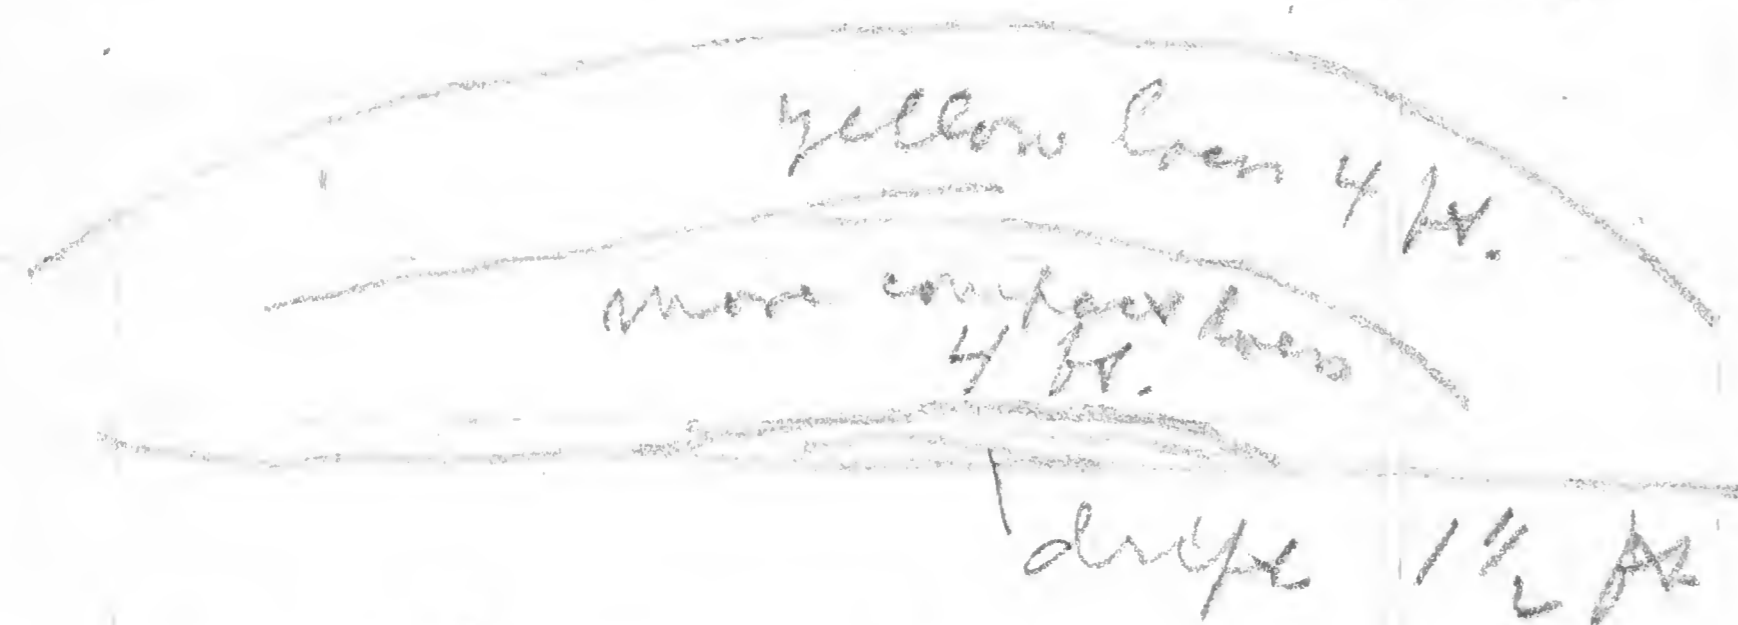 yellow loess 4 ft.
more compact loess
4 ft.
drift 1 1/2 ft